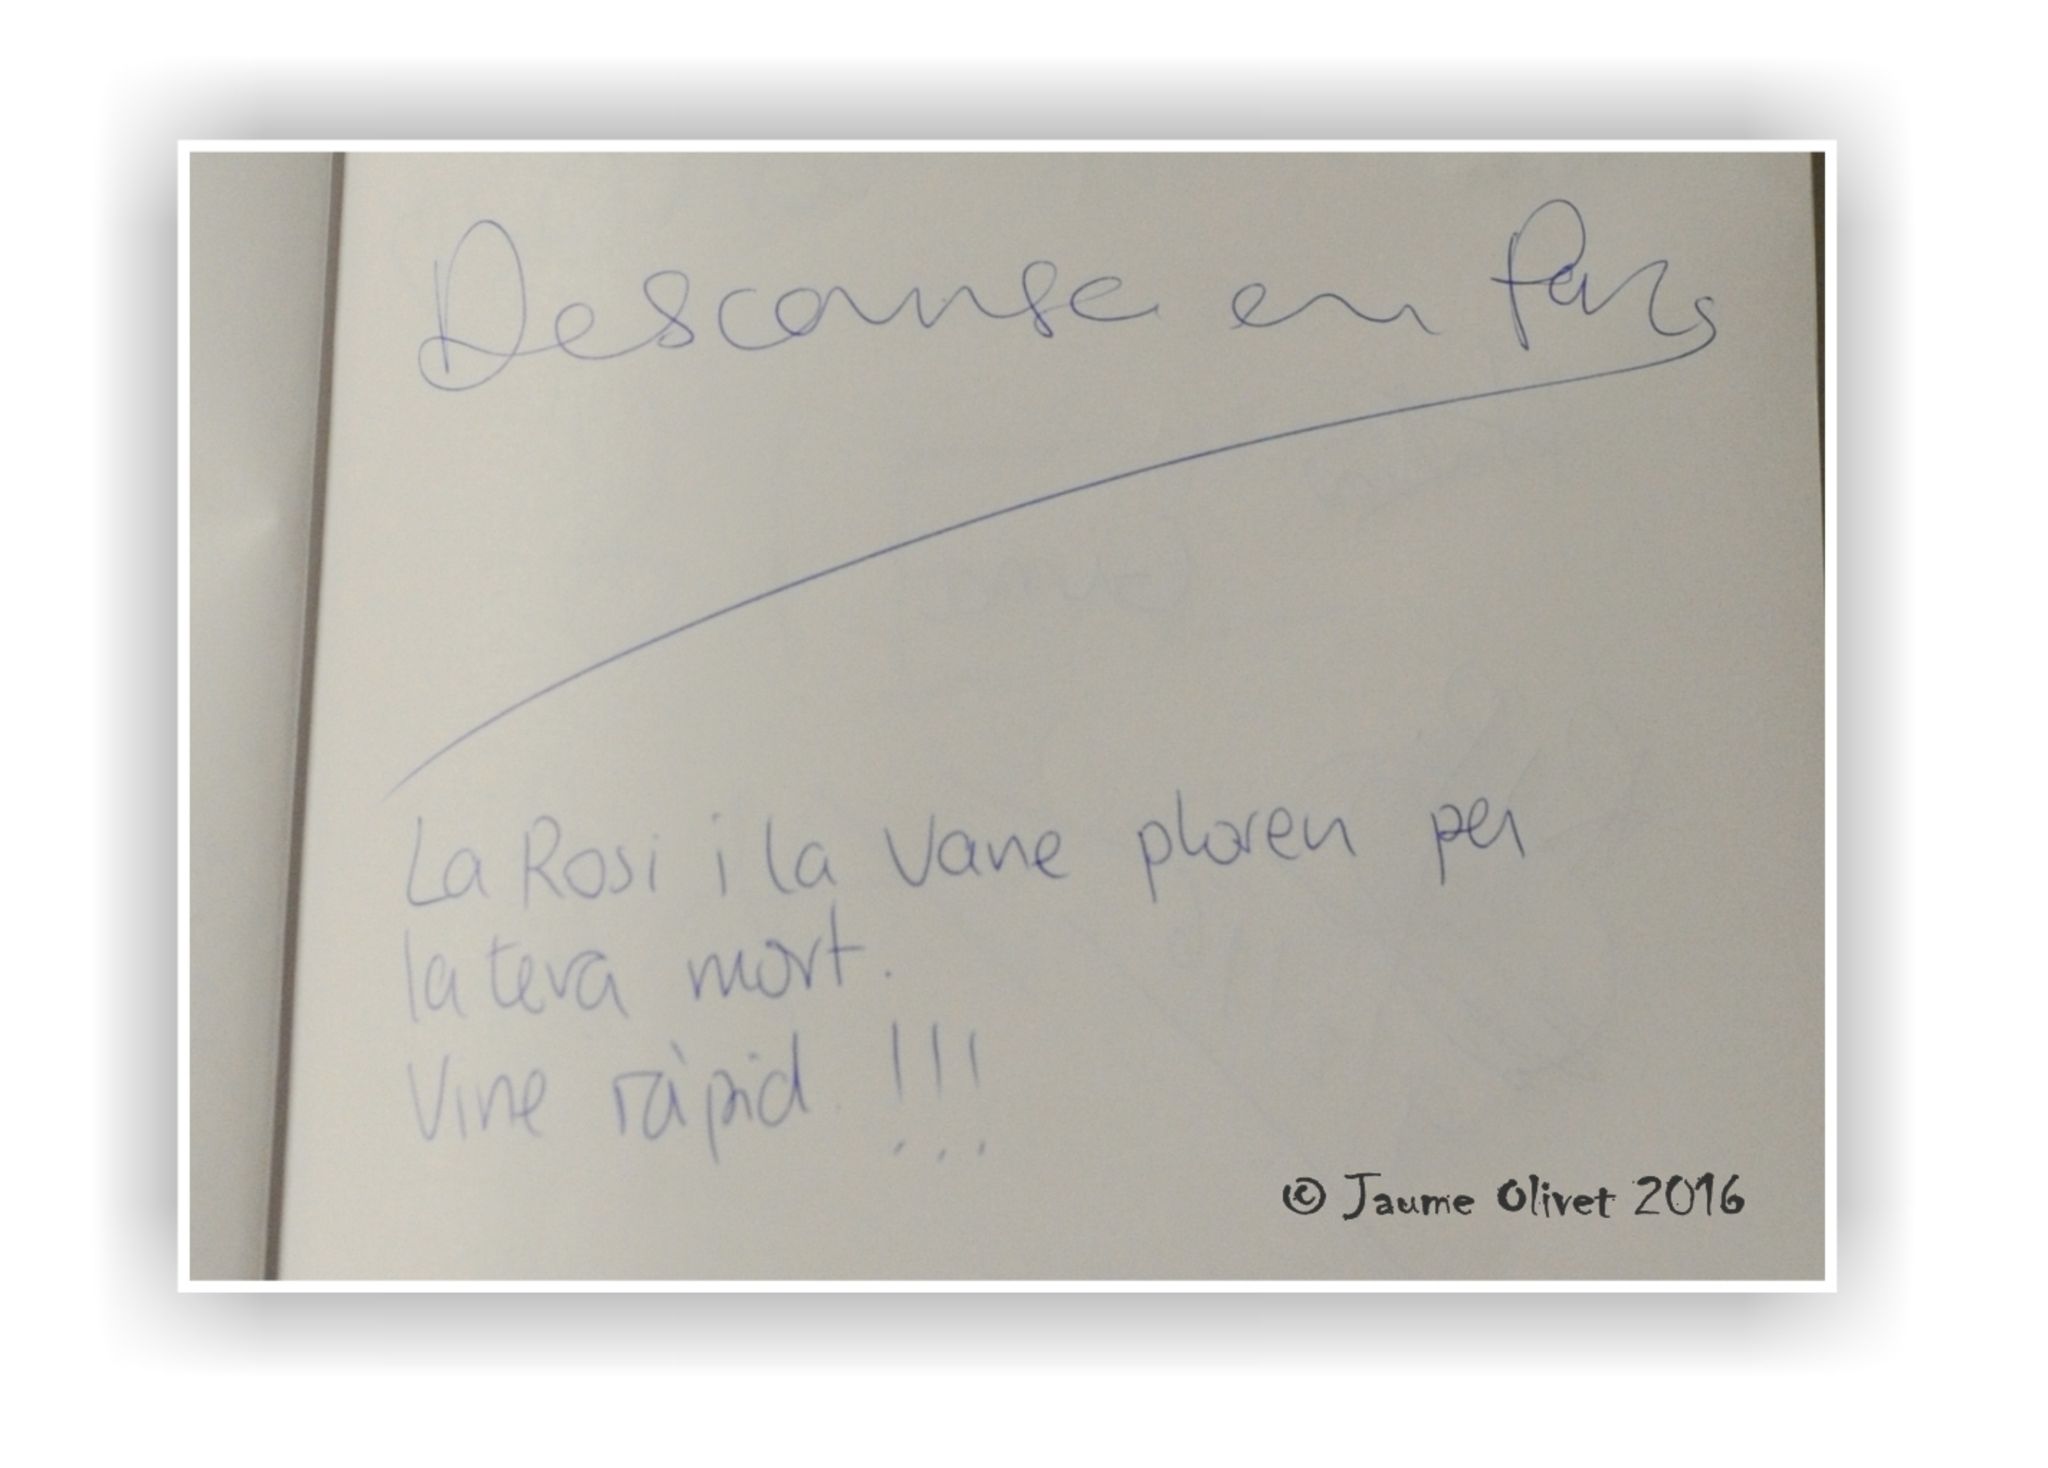 Descanse en Paz
La Rosi i la Vane ploren per
la teva mort.
Vine ràpid !!!
© Jaume Olivet 2016